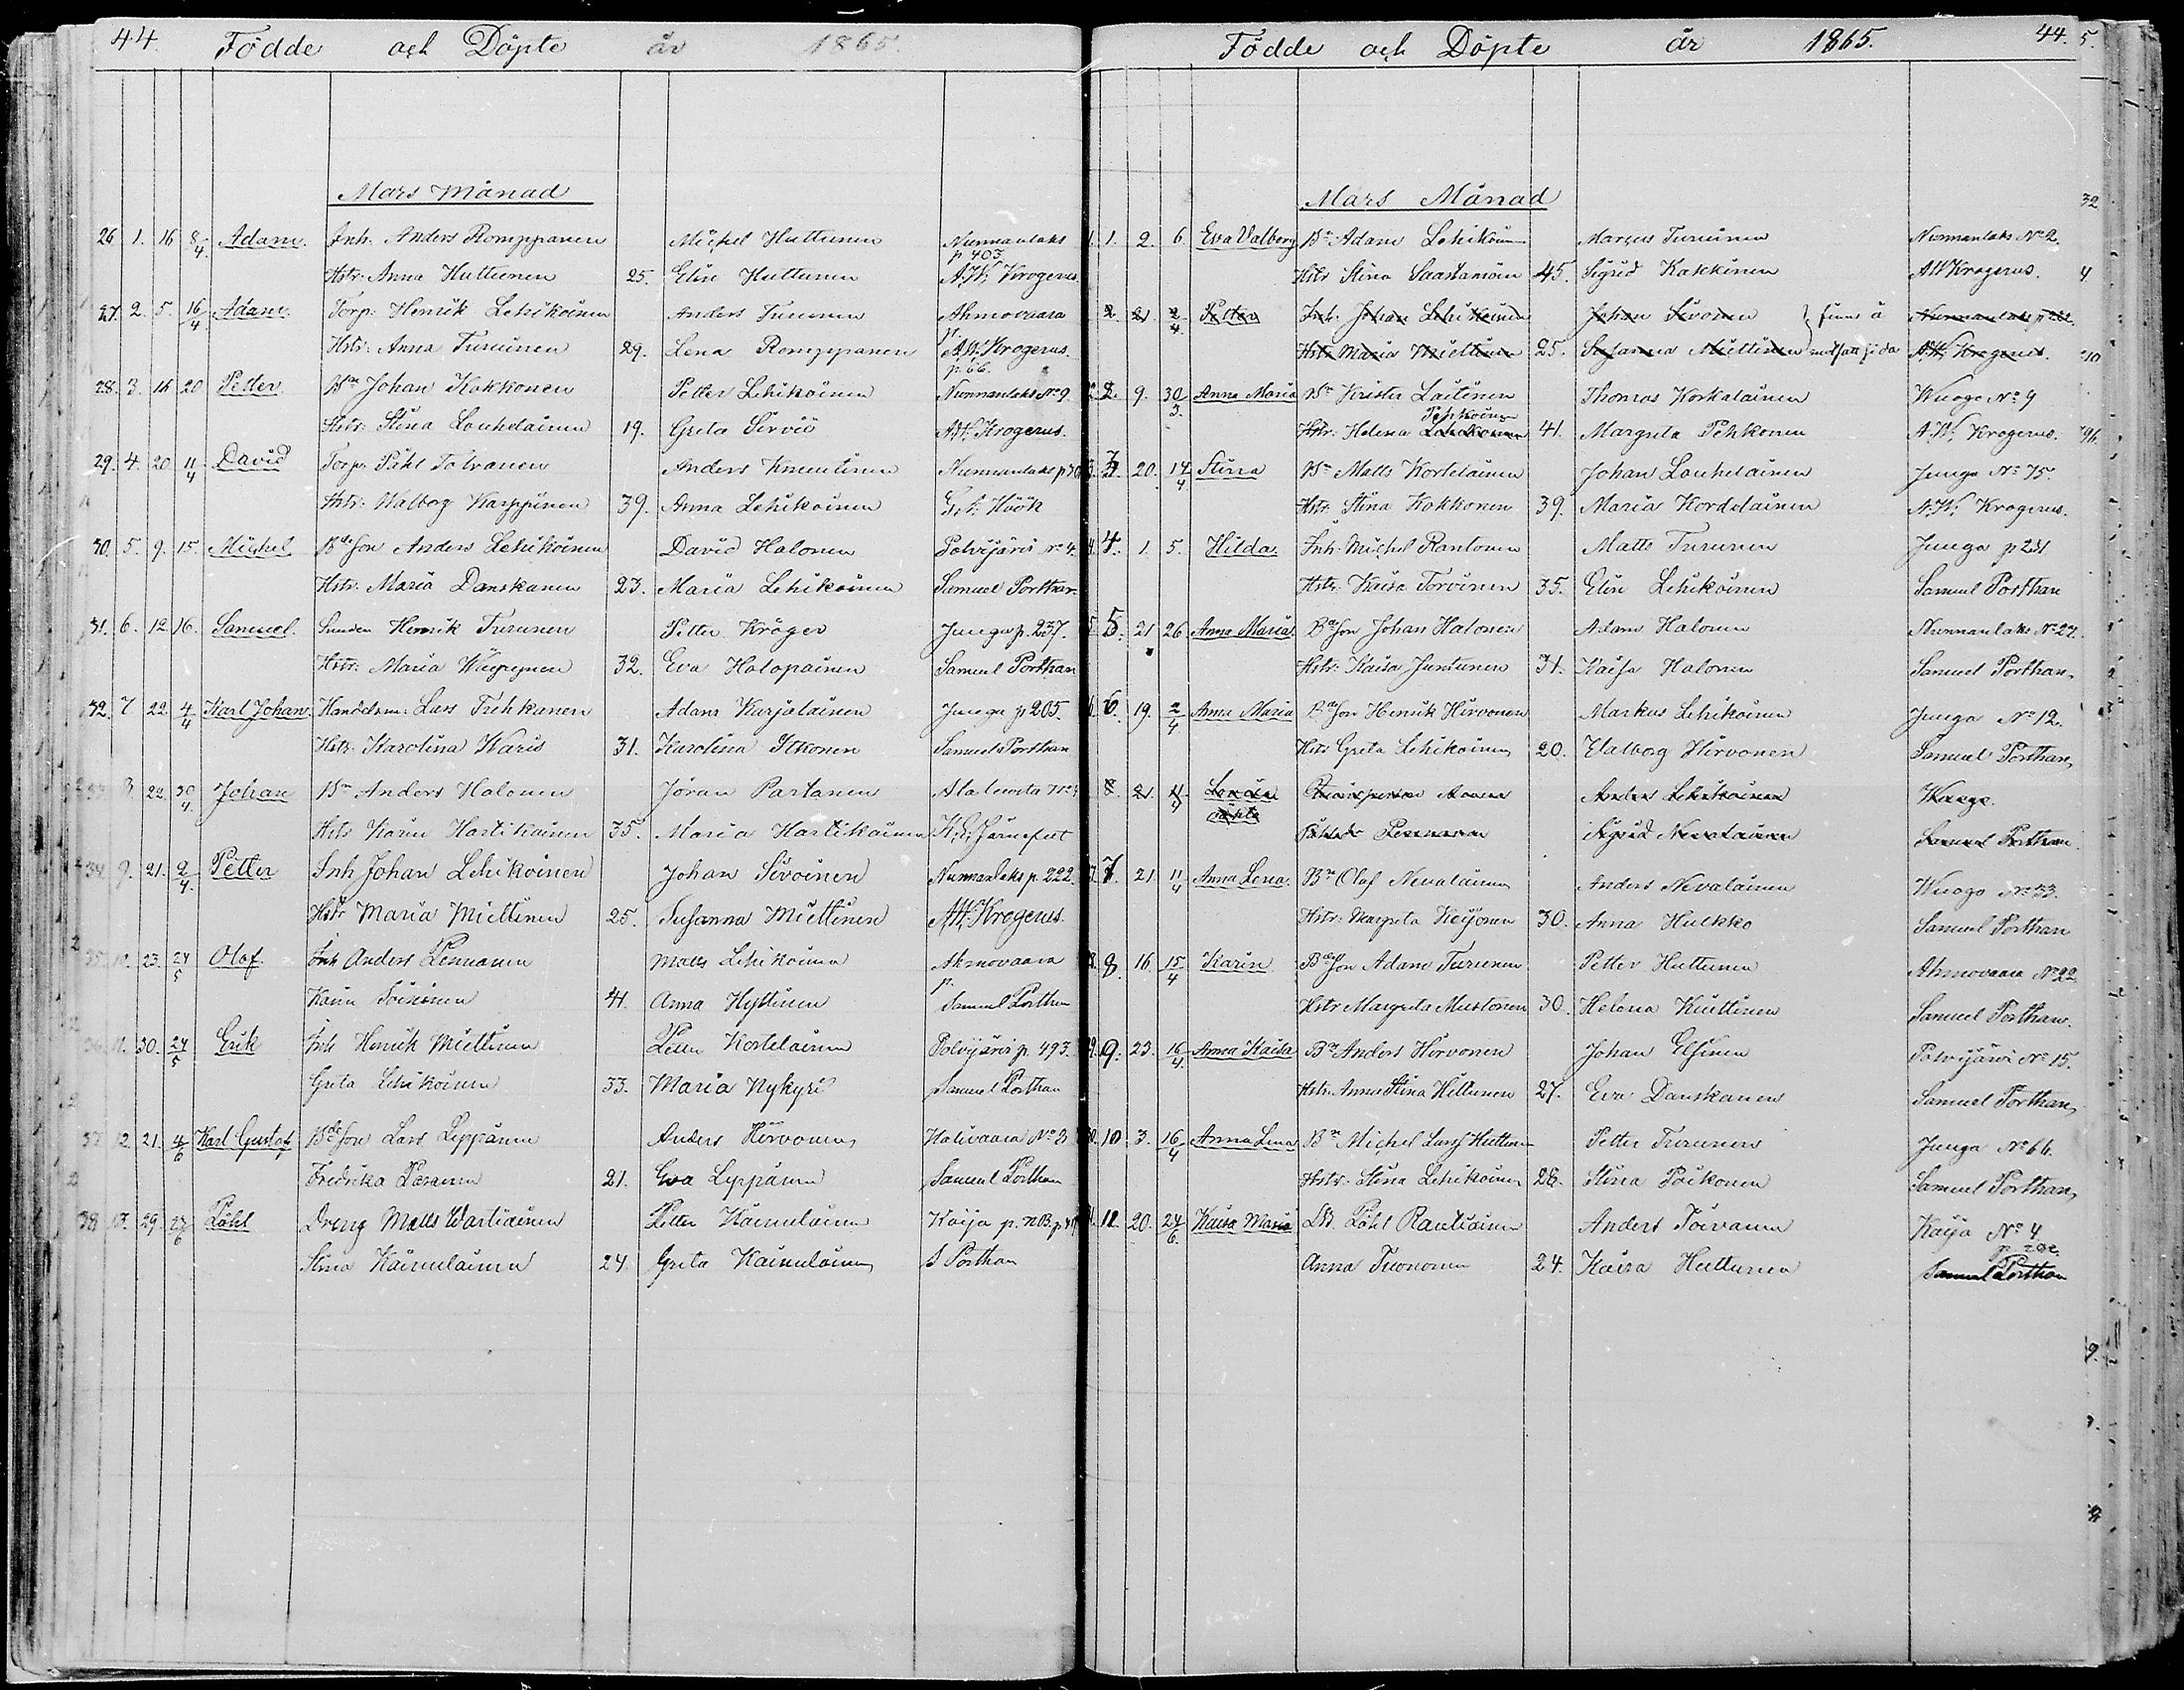 44. Födde och Döpte år 1865.
Mars Månad
26 1. 16 8/4 Adam. Inh. Anders Romppanen Michel Huttunen Nunnanlaks p 403
Hstr. Anna Huttunen 25. Elin Huttunen A.W. Krogerus.
27. 2. 5. 16/4 Adam. Torp. Henrik Lehikoinen Anders Turunen Ahmovaara p.
Hstr. Anna Turuinen 29. Lena Romppanen A.W. Krogerus. p. 66.
28. 3. 16 20 Petter Bn Johan Kokkonen Petter Lehikoinen Nunnanlaks No 9.
Hstr. Stina Louhelainen 19. Greta Sirviö A.W. Krogerus.
29. 4. 20 11/4 David Torp. Påhl Tolvanen Anders Nunnanlaks
Hstr. Walborg Karppinen 39. Anna Lehikoinen Höök
30. 5. 9. 15. Michel Bdeson Anders Lehikoinen David Halonen Polvijärvi No 4.
Hstr. Maria Danskanen 23. Maria Lehikoinen Samuel Porthan
31. 6. 12. 16. Samuel. Henrik Turunen Petter Kröger Junga p. 237.
Hstr. Maria 32. Eva Holopainen Samuel Porthan
32. 7. 22 4/4 Karl Johan. Handelsm. Lars Adam Karjalainen Junga p 205.
Hstr. Karolina Waris 31. Karolina Itkonen Samuel Porthan
33 8. 22. 30/4. Johan Bn Anders Halonen Jöran Partanen
Hstr Karin Hartikainen 35. Maria Hartikainen Järnefelt
34 9. 21. 2/4. Petter Inh Johan Lehikoinen Johan Sivoinen Nunnanlaks p. 222.
Hstr Maria Miettinen 25. Susanna Miettinen A.W. Krogerus.
35. 10. 23. 24/5 Olof. Inh Anders Pennanen Matts Lehikoinen Ahmovaara p.
Karin 41. Anna Hyttinen Samuel Porthan
36. 11. 30. 24/5 Erik Inh Henrik Miettinen Petter Kortelainen Polvijärvi p. 493.
Greta Lehikoinen 33. Maria Nykyri Samuel Porthan
37. 12. 21. 4/6 Karl Gustaf Bdeson Lars Leppänen Anders Hirvonen Kolivaara No 3
Fredrika 21. Eva Leppänen Samuel Porthan
38 13. 29. 27/6 Påhl Dreng Matts Wartiainen Petter Kaimulainen Kaija p.
Stina Kaimulainen 24. Greta Kaimulainen S Porthan
Födde och Döpte år 1865. 44.
Mars Månad
1. 1. 2. 6 Eva Valborg Bn Adam Lehikoinen Marcus Turuinen Nunnanlaks No 2.
Hstr Stina Saastamoin 45. Sigrid Kakkinen A W Krogerus.
2. 21. 2/4 Petter Inh. Johan Lehikoinen Johan Sivonen finns å Nunnanlaks p 222.
Hstr Maria Miettinen 25. Susanna Miettinen motsatt sida A.W. Krogerus.
2. 9. 30/3. Anna Maria Bn Krister Laitinen Thomas Korkalainen Wuogo No 9
Pehkoinen
Hstr. Helena Lehikoinen 41. Margreta Pehkonen A.W. Krogerus.
3. 3. 20. 14/4 Stina Bn Matts Kortelainen Johan Louhelainen Junga No 75.
Hstr. Stina Kokkonen 39. Maria Kordelainen A.W. Krogerus.
4. 4. 1. 5. Hilda. Inh. Michel Rantonen Matts Turunen Junga p 231.
Hstr. Kaisa Torvinen 35. Elin Lehikoinen Samuel Porthan
5. 5. 21 26 Anna Maria Bdeson Johan Halonen Adam Halonen Nunnanlaks No 27.
Hstr. Kaisa Juntunen 31. Kaisa Halonen Samuel Porthan,
6. 6. 19. 2/4 Anna Maria Bdeson Henrik Hirvonen Markus Lehikoinen Junga No 12.
Hstr Greta Lehikoinen 20. Walborg Hirvonen Samuel Porthan,
8. 21. 11/4 Anders Lehikoinen Wuogo.
Sigrid Nevalainen Samuel Porthan.
7. 7. 21 11/4 Anna Lena. Bn Olof Nevalainen Anders Nevalainen Wuogo No 33.
Hstr. Margreta Keijonen 30. Anna Hulkko Samuel Porthan
8. 8. 16. 15/4 Karin Bdeson Adam Turunen Petter Huttunen Ahmovaara No 22
Hstr Margreta Mustonen 30. Helena Kiuttinen Samuel Porthan.
9. 9. 23. 16/4. Anna Kaisa Bn Anders Hirvonen Johan Elfinen Polvijärvi No 15.
Hstr. Anna Stina Hiltunen 27. Eva Danskanen Samuel Porthan,
10. 10. 3. 16/4 Anna Lena Bn Michel Larss Huttunen Petter Turunen Junga No 66.
Hstr. Stina Lehikoinen 26. Stina Poikonen Samuel Porthan,
12. 20. 24/6. Kaisa Maria Påhl Rautiainen Anders Toivanen Kaija No 4
p 202.
Anna Tuononen 24. Kaisa Huttunen Samuel Porthan